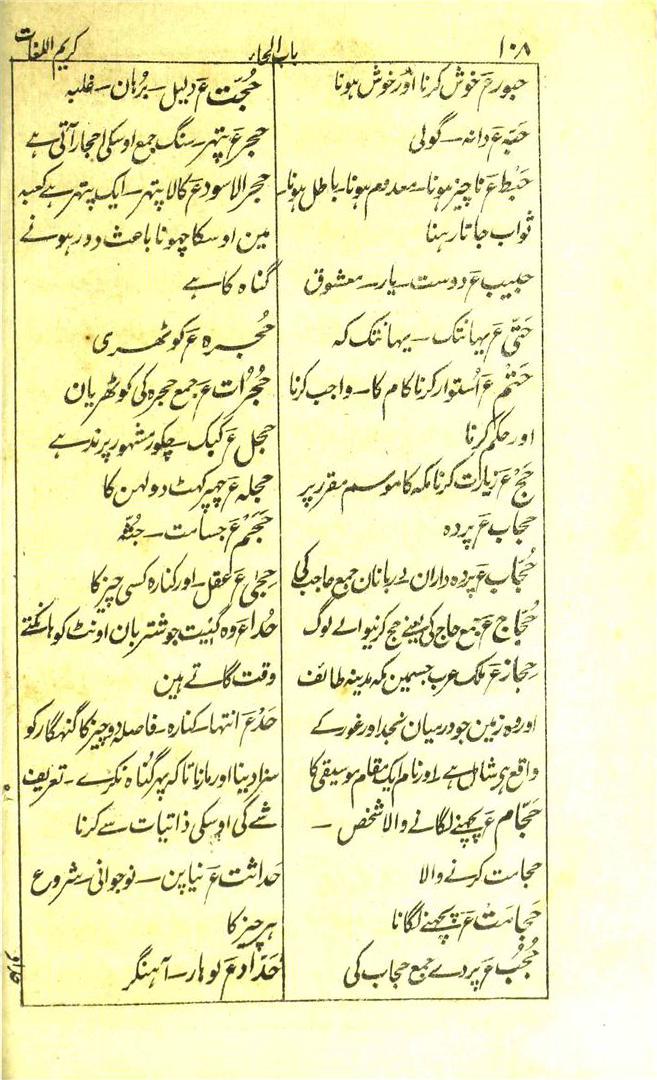 ۱۰۸
باب الحاء
کریم اللغات
حبور ع خوش کرنا اور خوش ہونا
حَبّہ ع دانہ ۔ گولی
حَبْط ع ناچیز ہونا ۔ معدوم ہونا ۔ باطل ہونا ۔
ثواب جاتا رہنا
حبیب ع دوست ۔ یار ۔ معشوق
حَتّیٰ ع یہانتک ۔ یہانتک کہ
حَتْم ع اُستوار کرنا کام کا ۔ واجب کرنا
اور حکم کرنا
حَجّ ع زیارت کرنا مکہ کا موسم مقرر پر
حجاب ع پردہ
حُجّاب ع پردہ داران دربانان جمع حاجب کی
حُجّاج ع جمع حاج کی یعنے حج کرنیوالے لوگ
حِجاز ع ملک عرب جسمین مکہ مدینہ طائف
اور وہ زمین جو درمیان نجد اور غور کے
واقع ہر شامل ہے ۔ اور نام ایک مقام موسیقی کا
حَجّام ع پچھنے لگانے والا شخص ۔
حجامت کرنے والا
حِجامت ع پچھنے لگانا
حُجُب ع پردے جمع حجاب کی
حُجّت ع دلیل ۔ برُہان ۔ غلبہ
حجر ع پتھر ۔ سنگ جمع اوسکی احجار آتی ہے
حجر الاسود ع کالا پتھر ۔ ایک پتھر ہے کعبہ
مین اوسکا چھونا باعث دور ہونے
گناہ کا ہے
حُجرہ ع کوٹھری
حُجُرات ع جمع حجرہ کی کوٹھریان
حجل ع کبک ۔ چکور مشہور پرند ہے
حجلہ ع چھپر کھٹ دولہن کا
حَجْم ع جسامت ۔ جُثّہ
حِجیٰ ع عقل ۔ اور کنارہ کسی چیز کا
حُدا ع وہ گیت جو شتربان اونٹ کو ہانکتے
وقت گاتے ہین
حَدّ ع انتہا ۔ کنارہ ۔ فاصلہ دو چیز کا گنہگار کو
سزا دینا اور مارنا تاکہ پھر گناہ نکرے ۔ تعریف
شے کی اوسکی ذاتیات سے کرنا
حَداثت ع نیا پن ۔ نوجوانی ۔ شروع
ہر چیز کا
حَدّاد ع لوہار ۔ آہنگر